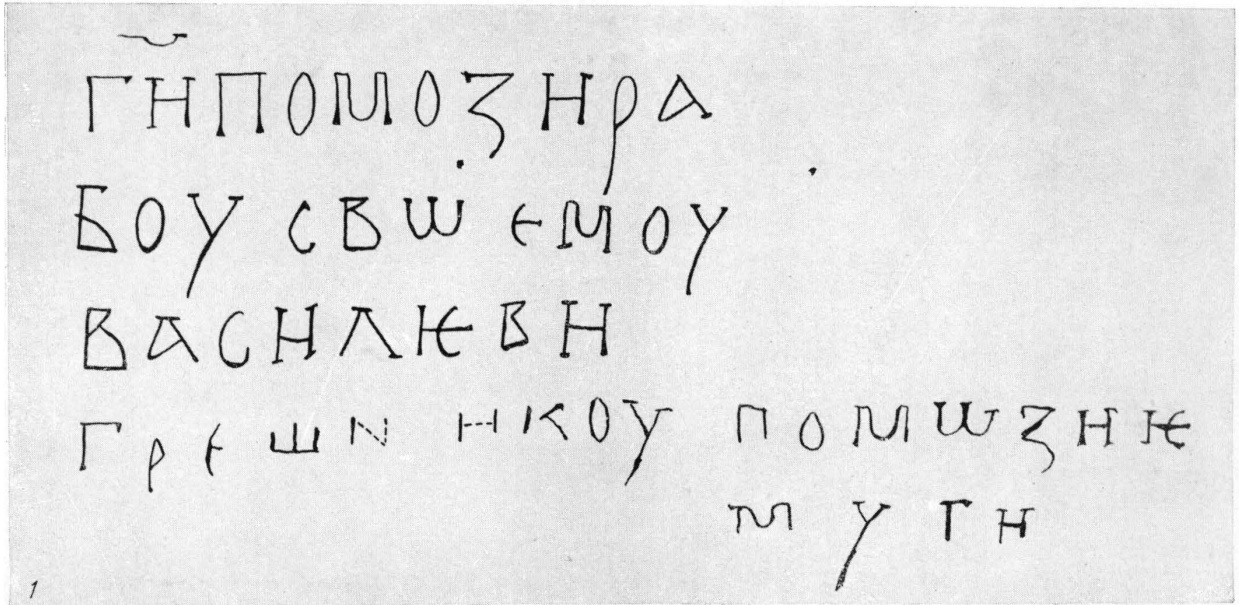 Г҃ИПОМОЗИРА
БОУ СВѠЕМОУ
ВАСИЛѤВИ
ГРЕШНИКОУ ПОМѠЗИѤ
МУГИ
1